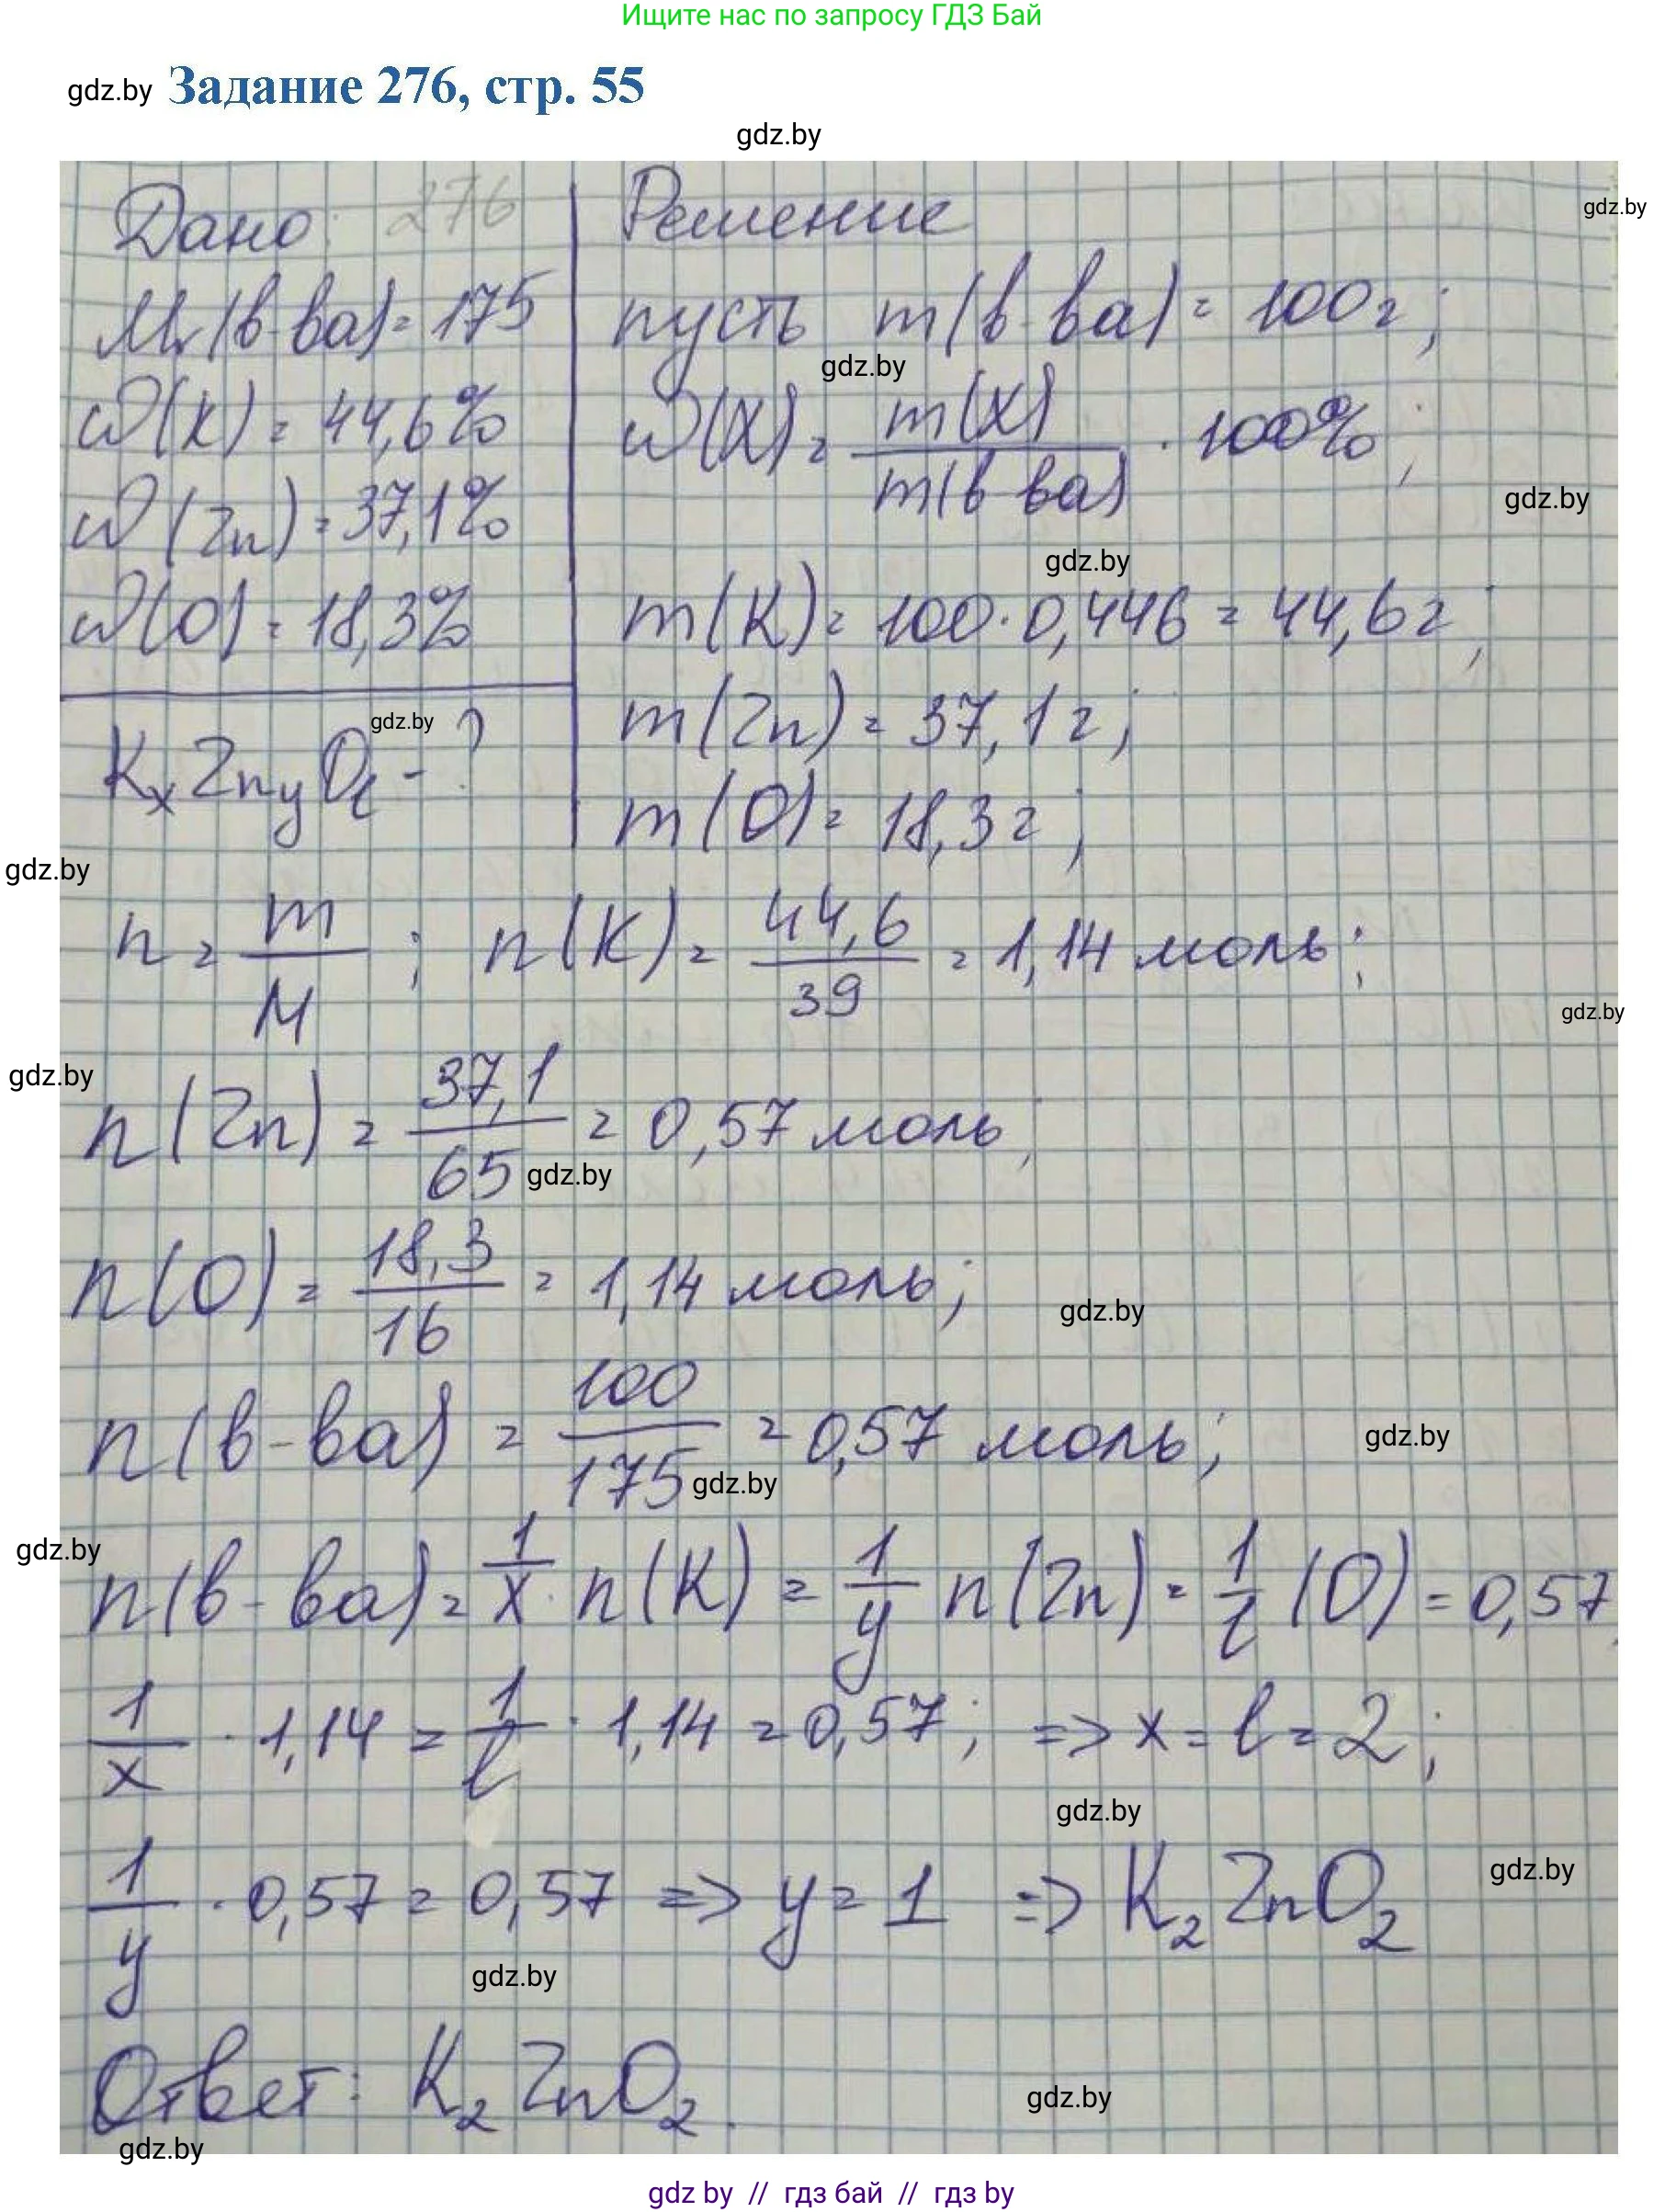 Ищите нас по запросу ГДЗ Бай
gdz.by Задание 276, стр. 55
gdz.by
Дано: 276
Mr(в-ва) = 175
ω(K) = 44,6%
ω(Zn) = 37,1%
ω(O) = 18,3%
KxZnyOl - ?
gdz.by
Решение
gdz.by
пусть m(в-ва) = 100г;
gdz.by
ω(X) = m(X) / m(в-ва) · 100%;
gdz.by
gdz.by
m(K) = 100 · 0,446 = 44,6г;
m(Zn) = 37,1г;
m(O) = 18,3г;
gdz.by
n = m / M ; n(K) = 44,6 / 39 = 1,14 моль;
gdz.by
gdz.by
n(Zn) = 37,1 / 65 = 0,57 моль;
gdz.by
n(O) = 18,3 / 16 = 1,14 моль;
gdz.by
n(в-ва) = 100 / 175 = 0,57 моль;
gdz.by
gdz.by
gdz.by
n(в-ва) = 1/x · n(K) = 1/y n(Zn) = 1/l (O) = 0,57,
1/x · 1,14 = 1/l · 1,14 = 0,57; => x = l = 2;
gdz.by
1/y · 0,57 = 0,57 => y = 1 => K2ZnO2
gdz.by
gdz.by
Ответ: K2ZnO2.
gdz.by
gdz.by
gdz by // гдз бай // гдз by